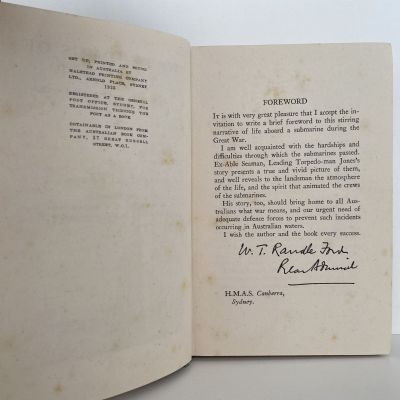 SET UP, PRINTED AND BOUND
IN AUSTRALIA BY
HALSTEAD PRINTING COMPANY
LTD., ARNOLD PLACE, SYDNEY
REGISTERED AT THE GENERAL
POST OFFICE, SYDNEY, FOR
TRANSMISSION THROUGH THE
POST AS A BOOK
OBTAINABLE IN LONDON FROM
THE AUSTRALIAN BOOK COM-
PANY, 37 GREAT RUSSELL
STREET, W.C.1.
FOREWORD
IT is with very great pleasure that I accept the in-
vitation to write a brief foreword to this stirring
narrative of life aboard a submarine during the
Great War.
I am well acquainted with the hardships and
difficulties through which the submarines passed.
Ex-Able Seaman, Leading Torpedo-man Jones's
story presents a true and vivid picture of them,
and well reveals to the landsman the atmosphere
of the life, and the spirit that animated the crews
of the submarines.
His story, too, should bring home to all Aus-
tralians what war means, and our urgent need of
adequate defence forces to prevent such incidents
occurring in Australian waters.
I wish the author and the book every success.
W. T. Randle Ford
Rear Admiral
H.M.A.S. Canberra,
Sydney.